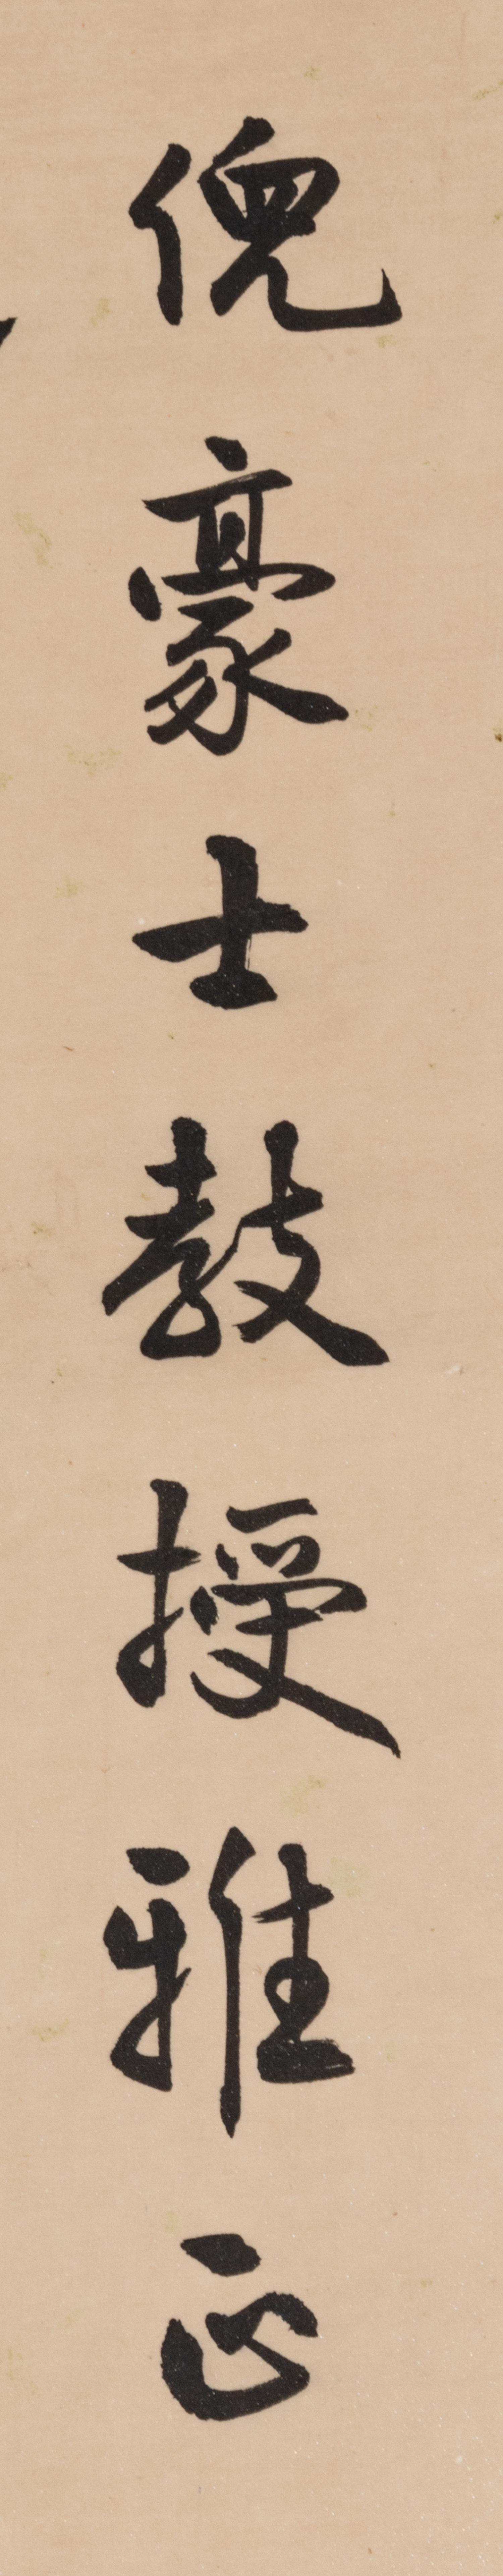 倪豪士教授雅正